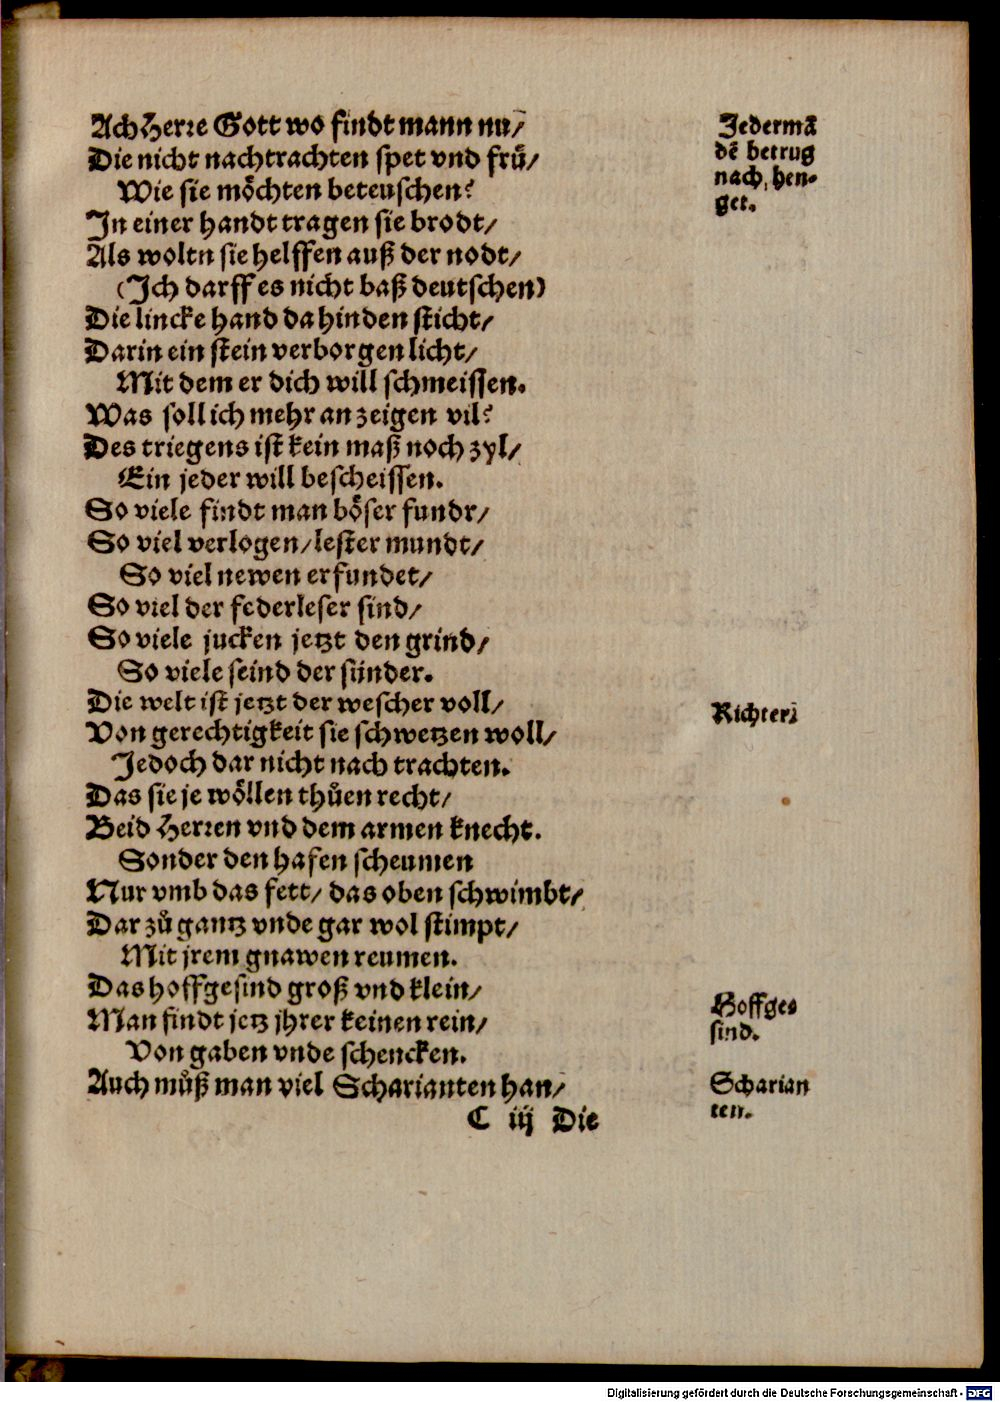 Ach Herre Gott wo findt mann nu/
Die nicht nachtrachten spet vnd frů/
Wie sie mőchten beteuschen?
In einer handt tragen sie brodt/
Als woltn sie helffen auß der nodt/
(Ich darff es nicht baß deutschen)
Die lincke hand da hinden sticht/
Darin ein stein verborgen licht/
Mit dem er dich will schmeissen.
Was soll ich mehr an zeigen vil?
Des triegens ist kein maß noch zyl/
Ein jeder will bescheissen.
So viele findt man bőser fundt/
So viel verlogen/lester mundt/
So viel newen erfundet/
So viel der federleser sind/
So viele jucken jetzt den grind/
So viele seind der sünder.
Die welt ist jetzt der wescher voll/
Von gerechtigkeit sie schwetzen woll/
Jedoch dar nicht nach trachten.
Das sie je wőllen thůen recht/
Beid Herren vnd dem armen knecht.
Sonder den hafen scheumen
Nur vmb das fett/ das oben schwimbt/
Dar zů gantz vnde gar wol stimpt/
Mit jrem gnawen reumen.
Das hoffgesind groß vnd klein/
Man findt jetz jhrer keinen rein/
Von gaben vnde schencken.
Auch můß man viel Scharianten han/
C iij Die
Jedermā
dē betrug
nach, hen-
get.
Richter
Hoffges
sind.
Scharian
ten.
Digitalisierung gefördert durch die Deutsche Forschungsgemeinschaft - DFG